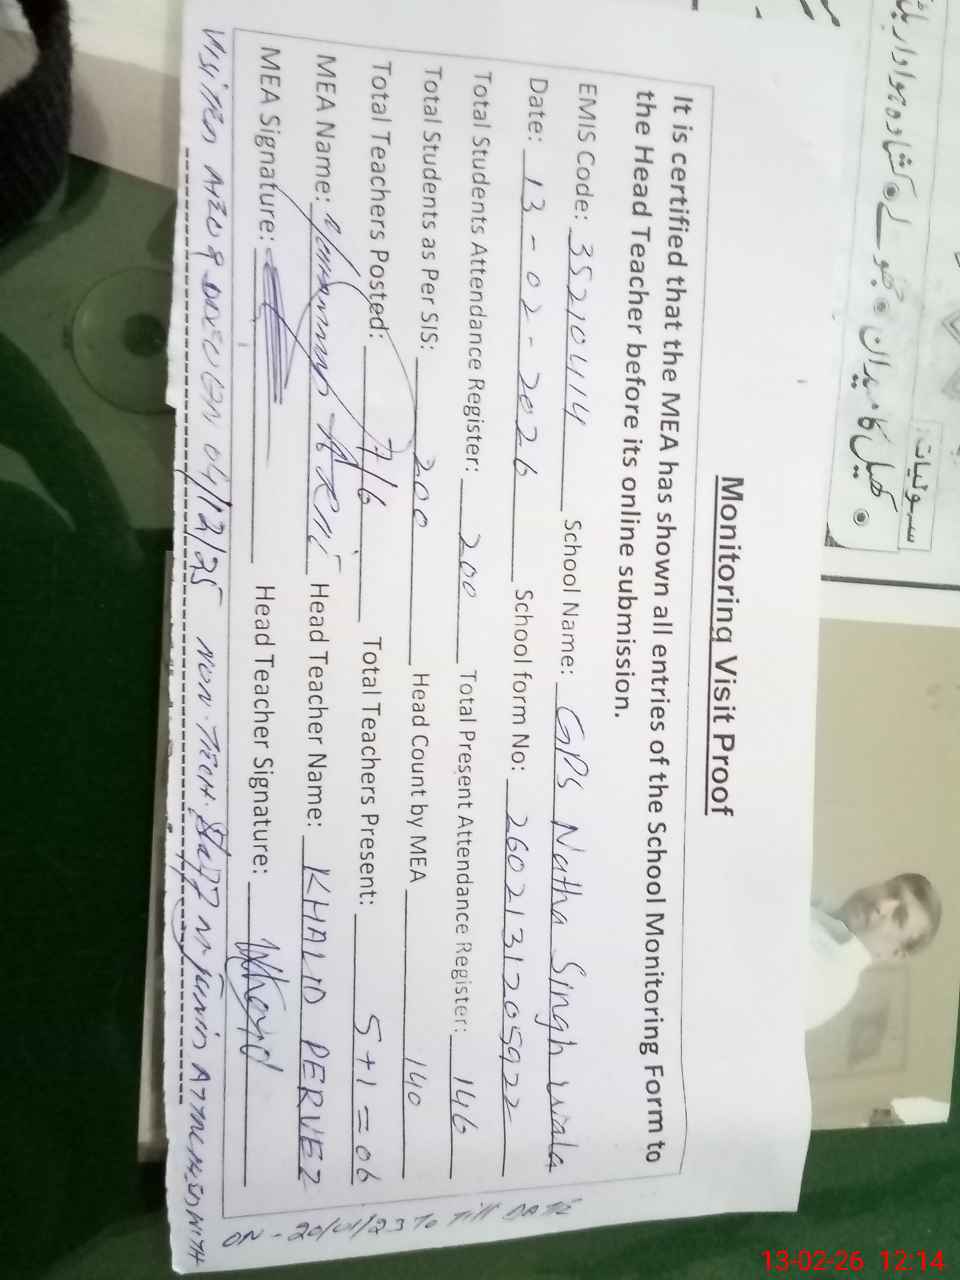 Monitoring Visit Proof
It is certified that the MEA has shown all entries of the School Monitoring Form to
the Head Teacher before its online submission.
EMIS Code: 35210414 School Name: GPS Natha Singh wala
Date: 13-02-2026 School form No: 2602131205922
Total Students Attendance Register: 200 Total Present Attendance Register: 146
Total Students as Per SIS: 200 Head Count by MEA 140
Total Teachers Posted: 7/6 Total Teachers Present: 5+1=06
MEA Name: Head Teacher Name: KHALID PERVEZ
MEA Signature: Head Teacher Signature:
VISITED ON 04/12/25 NON. TECH. Staff WITH
ON - 20/01/23 To Till DATE
سہولیات:
کھیل کا میدان
13-02-26 12:14